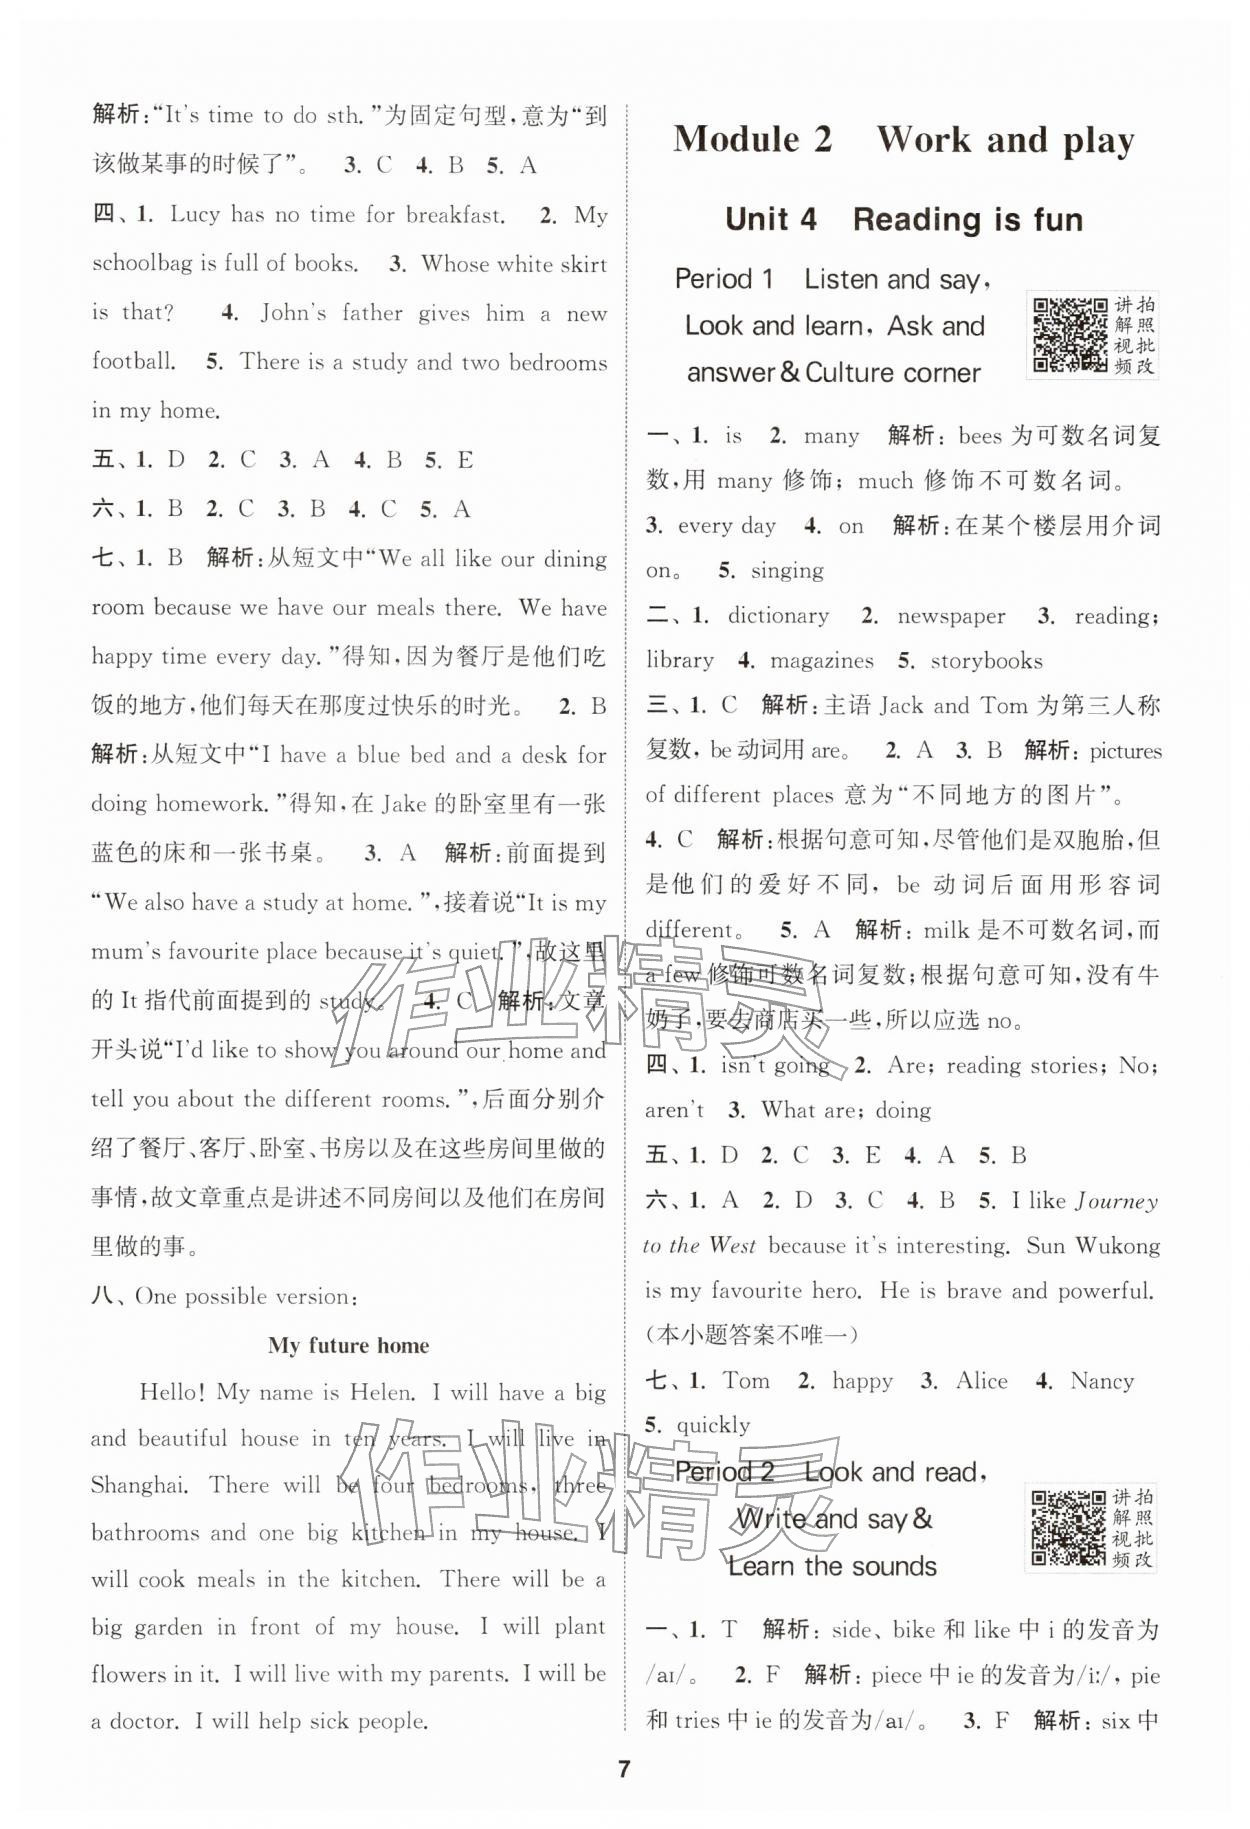 解析:“It's time to do sth.”为固定句型,意为“到
该做某事的时候了”。 3. C 4. B 5. A
四、1. Lucy has no time for breakfast. 2. My
schoolbag is full of books. 3. Whose white skirt
is that? 4. John's father gives him a new
football. 5. There is a study and two bedrooms
in my home.
五、1. D 2. C 3. A 4. B 5. E
六、1. B 2. C 3. B 4. C 5. A
七、1. B 解析:从短文中“We all like our dining
room because we have our meals there. We have
happy time every day.”得知,因为餐厅是他们吃
饭的地方,他们每天在那度过快乐的时光。 2. B
解析:从短文中“I have a blue bed and a desk for
doing homework.”得知,在 Jake 的卧室里有一张
蓝色的床和一张书桌。 3. A 解析:前面提到
“We also have a study at home.”,接着说“It is my
mum's favourite place because it's quiet.”,故这里
的 It 指代前面提到的 study。 4. C 解析:文章
开头说“I'd like to show you around our home and
tell you about the different rooms.”,后面分别介
绍了餐厅、客厅、卧室、书房以及在这些房间里做的
事情,故文章重点是讲述不同房间以及他们在房间
里做的事。
八、One possible version:
My future home
Hello! My name is Helen. I will have a big
and beautiful house in ten years. I will live in
Shanghai. There will be four bedrooms, three
bathrooms and one big kitchen in my house. I
will cook meals in the kitchen. There will be a
big garden in front of my house. I will plant
flowers in it. I will live with my parents. I will be
a doctor. I will help sick people.
Module 2 Work and play
Unit 4 Reading is fun
Period 1 Listen and say,
Look and learn, Ask and
answer & Culture corner
讲拍
解照
视批
频改
一、1. is 2. many 解析: bees 为可数名词复
数,用 many 修饰; much 修饰不可数名词。
3. every day 4. on 解析:在某个楼层用介词
on。 5. singing
二、1. dictionary 2. newspaper 3. reading;
library 4. magazines 5. storybooks
三、1. C 解析:主语 Jack and Tom 为第三人称
复数, be动词用 are。 2. A 3. B 解析: pictures
of different places 意为“不同地方的图片”。
4. C 解析:根据句意可知,尽管他们是双胞胎,但
是他们的爱好不同, be 动词后面用形容词
different。 5. A 解析: milk 是不可数名词,而
a few 修饰可数名词复数;根据句意可知,没有牛
奶了,要去商店买一些,所以应选 no。
四、1. isn't going 2. Are; reading stories; No;
aren't 3. What are; doing
五、1. D 2. C 3. E 4. A 5. B
六、1. A 2. D 3. C 4. B 5. I like Journey
to the West because it's interesting. Sun Wukong
is my favourite hero. He is brave and powerful.
(本小题答案不唯一)
七、1. Tom 2. happy 3. Alice 4. Nancy
5. quickly
Period 2 Look and read,
Write and say &
Learn the sounds
讲拍
解照
视批
频改
一、1. T 解析: side、bike 和 like 中 i 的发音为
/aɪ/。 2. F 解析: piece 中 ie 的发音为/iː/, pie
和 tries 中 ie 的发音为/aɪ/。 3. F 解析: six 中
7
作业精灵
作业精灵